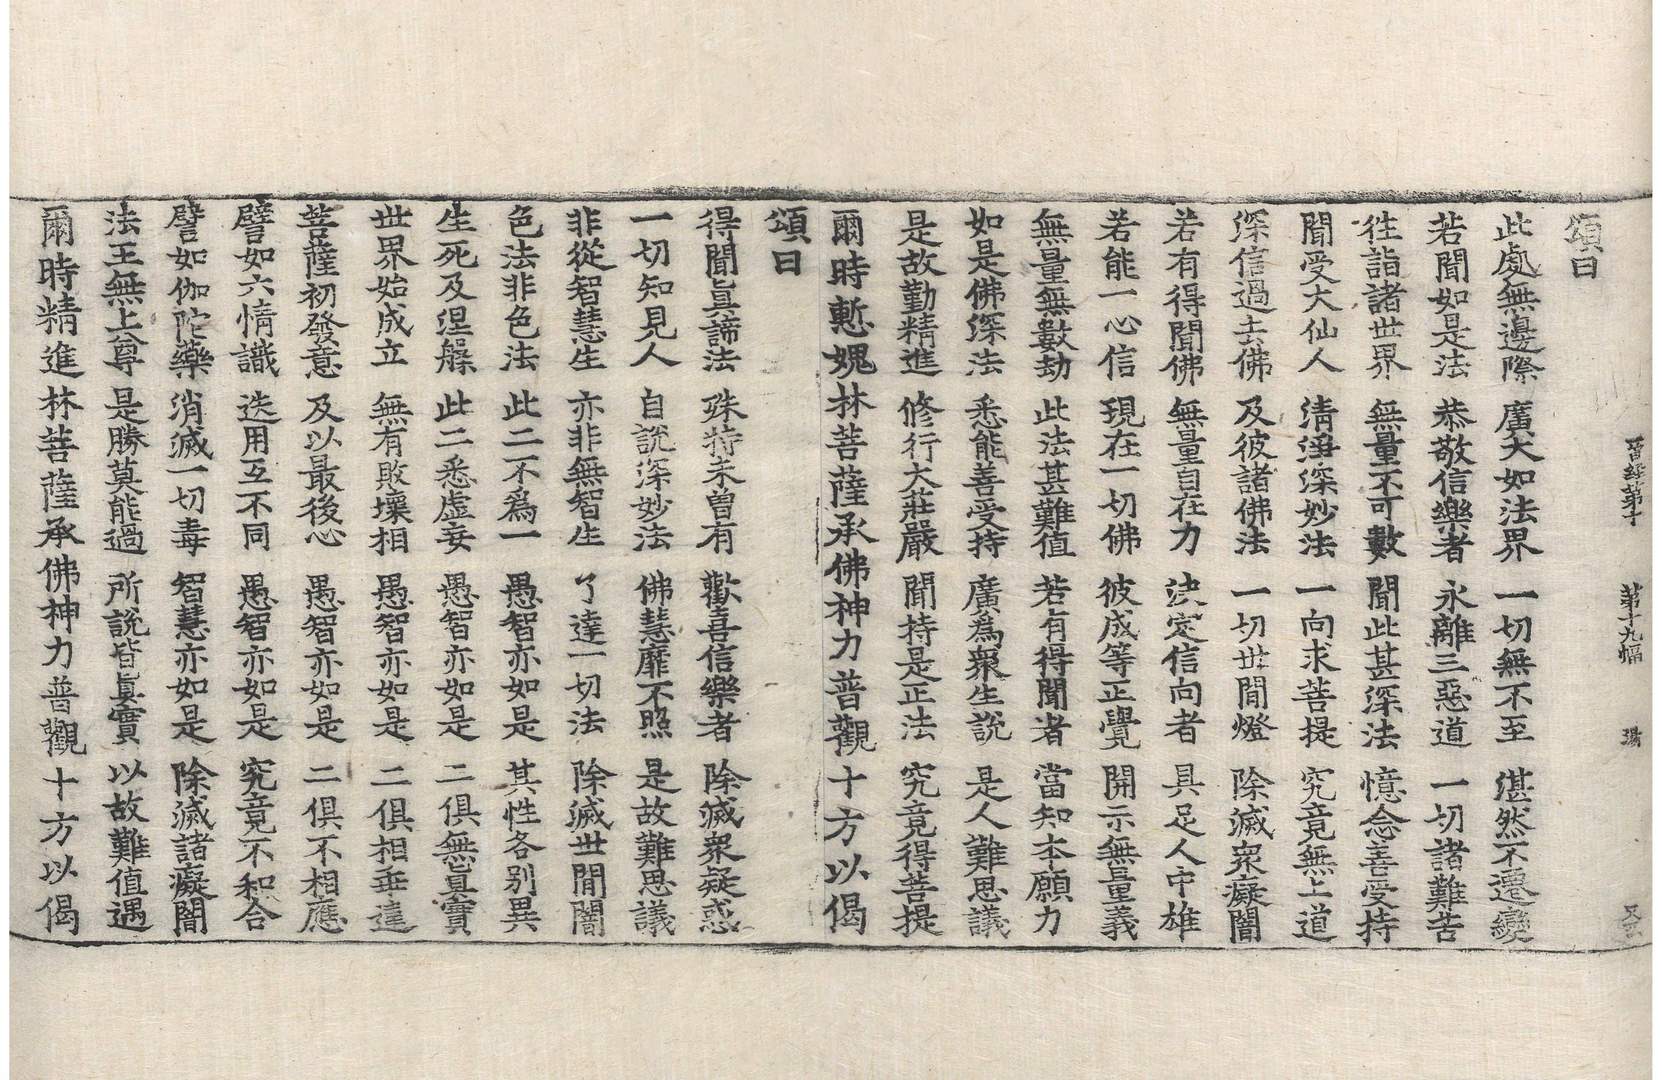 晉經第十 第十九幅 湯
頌曰
此處無邊際 廣大如法界 一切無不至 湛然不遷變
若聞如是法 恭敬信樂者 永離三惡道 一切諸難苦
往詣諸世界 無量不可數 聞此甚深法 憶念善受持
聞受大仙人 清淨深妙法 一向求菩提 究竟無上道
深信過去佛 及彼諸佛法 一切世間燈 除滅衆癡闇
若有得聞佛 無量自在力 決定信向者 具足人中雄
若能一心信 現在一切佛 彼成等正覺 開示無量義
無量無數劫 此法甚難值 若有得聞者 當知本願力
如是佛深法 悉能善受持 廣爲衆生說 是人難思議
是故勤精進 修行大莊嚴 聞持是正法 究竟得菩提
爾時慙愧林菩薩承佛神力普觀十方以偈
頌曰
得聞眞諦法 殊特未曾有 歡喜信樂者 除滅衆疑惑
一切知見人 自說深妙法 佛慧靡不照 是故難思議
非從智慧生 亦非無智生 了達一切法 除滅世間闇
色法非色法 此二不爲一 愚智亦如是 其性各別異
生死及涅槃 此二悉虛妄 愚智亦如是 二俱無眞實
世界始成立 無有敗壞相 愚智亦如是 二俱相乖違
菩薩初發意 及以最後心 愚智亦如是 二俱不相應
譬如六情識 迭用互不同 愚智亦如是 究竟不和合
譬如伽陀藥 消滅一切毒 智慧亦如是 除滅諸癡闇
法王無上尊 是勝莫能過 所說皆眞實 以故難值遇
爾時精進林菩薩承佛神力普觀十方以偈